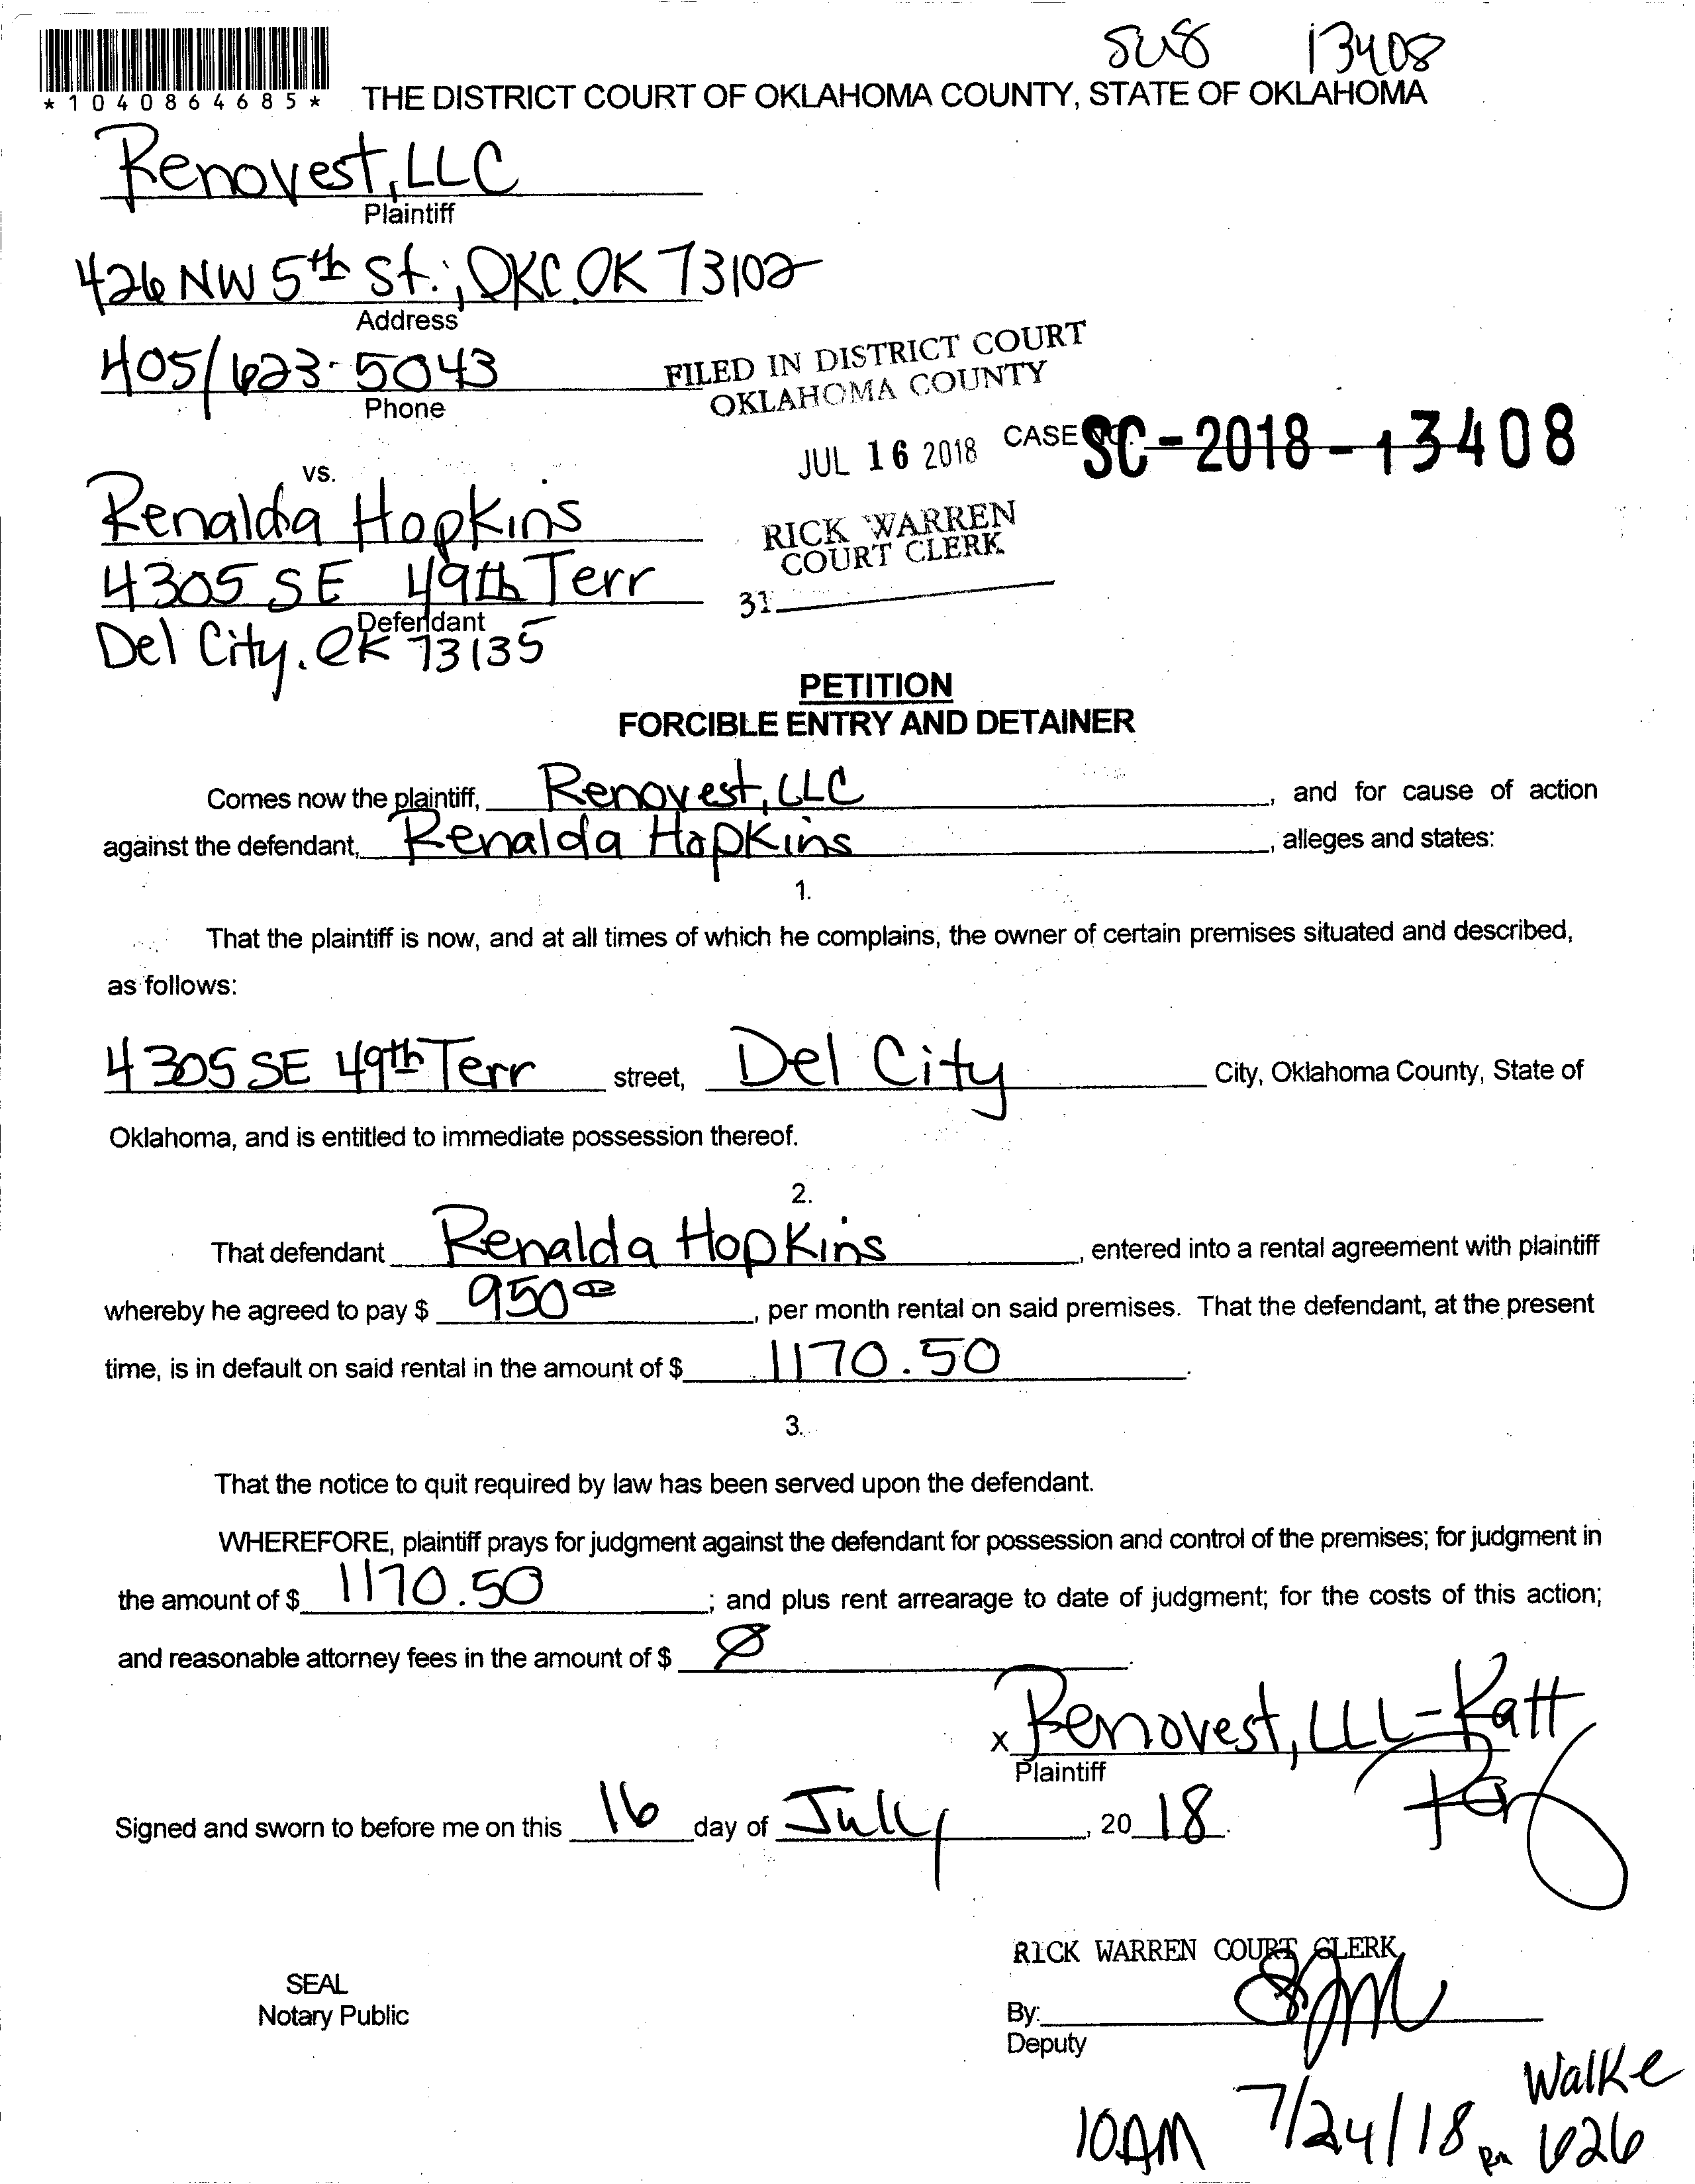 13408
*1040864685*
THE DISTRICT COURT OF OKLAHOMA COUNTY, STATE OF OKLAHOMA
Renovest, LLC
Plaintiff
426 NW 5th St.; OKC OK 73102
Address
405/623-5043
Phone
FILED IN DISTRICT COURT
OKLAHOMA COUNTY
JUL 16 2018
CASE NO. SC-2018-13408
vs.
RICK WARREN
COURT CLERK
31
Renalda Hopkins
4305 SE 49th Terr
Defendant
Del City, OK 73135
PETITION
FORCIBLE ENTRY AND DETAINER
Comes now the plaintiff, Renovest, LLC, and for cause of action
against the defendant, Renalda Hopkins, alleges and states:
1.
That the plaintiff is now, and at all times of which he complains, the owner of certain premises situated and described,
as follows:
4305 SE 49th Terr street, Del City City, Oklahoma County, State of
Oklahoma, and is entitled to immediate possession thereof.
2.
That defendant Renalda Hopkins, entered into a rental agreement with plaintiff
whereby he agreed to pay $ 950 00, per month rental on said premises. That the defendant, at the present
time, is in default on said rental in the amount of $ 1170.50.
3.
That the notice to quit required by law has been served upon the defendant.
WHEREFORE, plaintiff prays for judgment against the defendant for possession and control of the premises; for judgment in
the amount of $ 1170.50; and plus rent arrearage to date of judgment; for the costs of this action;
and reasonable attorney fees in the amount of $ Ø.
x Renovest, LLC - Katt
Plaintiff
Signed and sworn to before me on this 16 day of July, 2018.
RICK WARREN COURT CLERK
SEAL
Notary Public
By:
Deputy
Walke
10AM 7/24/18 Rm 626